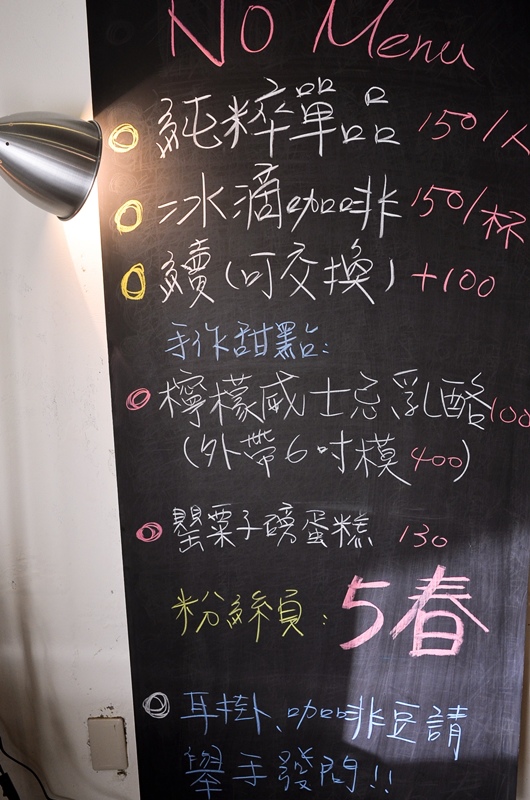 No Menu
純粹單品 150/人
冰滴咖啡 150/杯
續(可交換) +100
手作甜點:
檸檬威士忌乳酪 100
(外帶6吋模 400)
罌粟子磅蛋糕 130
粉絲員: 5春
耳掛、咖啡豆請
舉手發問!!